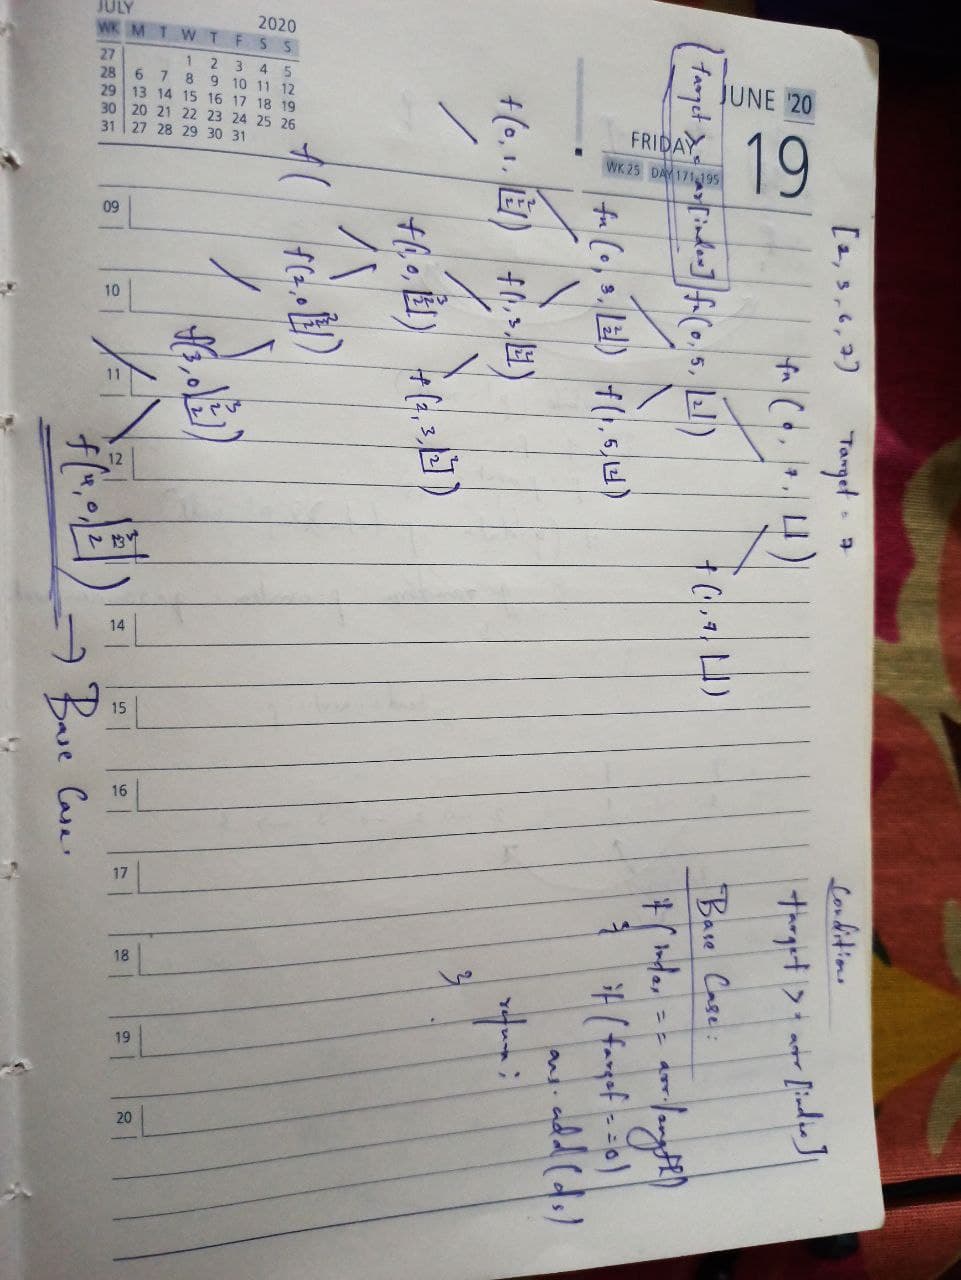 JULY 2020
WK M T W T F S S
27 1 2 3 4 5
28 6 7 8 9 10 11 12
29 13 14 15 16 17 18 19
30 20 21 22 23 24 25 26
31 27 28 29 30 31
JUNE '20
FRIDAY 19
WK 25 DAY 171-195
09
10
11
12
14
15
16
17
18
19
20
[2, 3, 6, 7] Target = 7
fn (0, 7, ⊔)
(target >= arr[index]
fn (0, 5, [2])
f (1, 7, ⊔)
fn (0, 3, [2 2])
f (1, 5, [2])
f (0, 1, [2 2 2])
f (1, 3, [2 2])
f (1, 0, [2 2 3])
f (2, 3, [2 2])
f (
f (2, 0, [2 2 3])
f (3, 0, [2 2 3])
f (4, 0, [2 2 3]) → Base Case.
Condition
target >= arr [index]
Base Case:
if (index == arr.length)
{ if (target == 0)
ans.add (ds)
return;
}